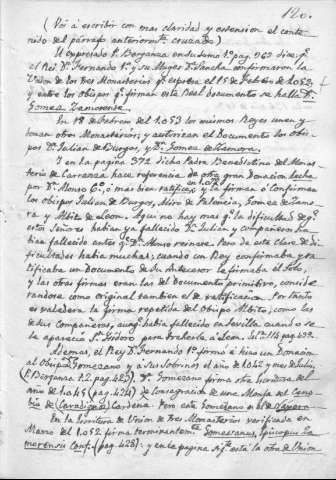 120.
(Voi á escribir con mas claridad y estension el conte-
nido del párrafo anteriormte. cruzado)
El expresado P. Berganza en dicho tomo 1º pag. 363 dice, q.
el Rei Dn. Fernando 1º y su Muger Dª Sancha confirmaron la
Union de los tres Monasterios q. espresa el 15 de Febrero de 1052,
y entre los obispos q. firman este Real documento se halla Dn.
Gomez Zamorense.
En 18 de Febrero del 1053 los mismos Reyes unen y
donan otro Monasterio; y autorizan el Documento los obis-
pos Dn. Julian de Burgos, y Dn. Gomez de Zamora.
Y en la pagina 372 dicho Padre Benedictino del Monas-
terio de Carranza hace referencia de otra gran Donacion hecha
por Dn. Alonso 6º; ó mas bien ratifica, y la firman ó Confirman
los obispos Julian de Burgos, Miro de Palencia, Gomez de Zamo-
ra y Albito de Leon. Aqui no hay mas q. la dificultad de q.
estos Señores habian ya fallecido Dn. Julian y compañeros ha-
bian fallecido antes q. Dn. Alonso reinase. Pero de esta clase de di-
ficultades habia muchas; cuando un Rey confirmaba y ra-
tificaba un Documento de su Antecesor le firmaba el solo,
y las otras firmas eran las del Documento primitivo, conside
randose como original tambien el de ratificacion. Por tanto
es valedera la firma repetida del Obispo Albito; como las
de sus Compañeros, aunq. habia fallecido en Sevilla cuando se
le aparecio Sn. Isidoro para traherle a Leon. Scl. 1º pag. 439.
Ademas, el Rey Dn. Fernando 1º firmó é hizo una Donacion
al Obispo Gomezano y á sus Sobrinos el año de 1042 y mes de Julio,
(P. Berganza t. 2. pag. 423). Dn. Gomezano firma otra Escritura del
año de 1045 (pag. 424) de Consagracion de una Monja del Ceno-
bio de (Caradigna) Cardeña. Pero este Gomezano
En la Escritura de Union de tres Monasterios verificada en
Marzo del 1052 firma terminantemte. Gomesanus, Episcopus Za-
morensis Conf. (pag. 428): y en la pagina sigte. está la otra de Union